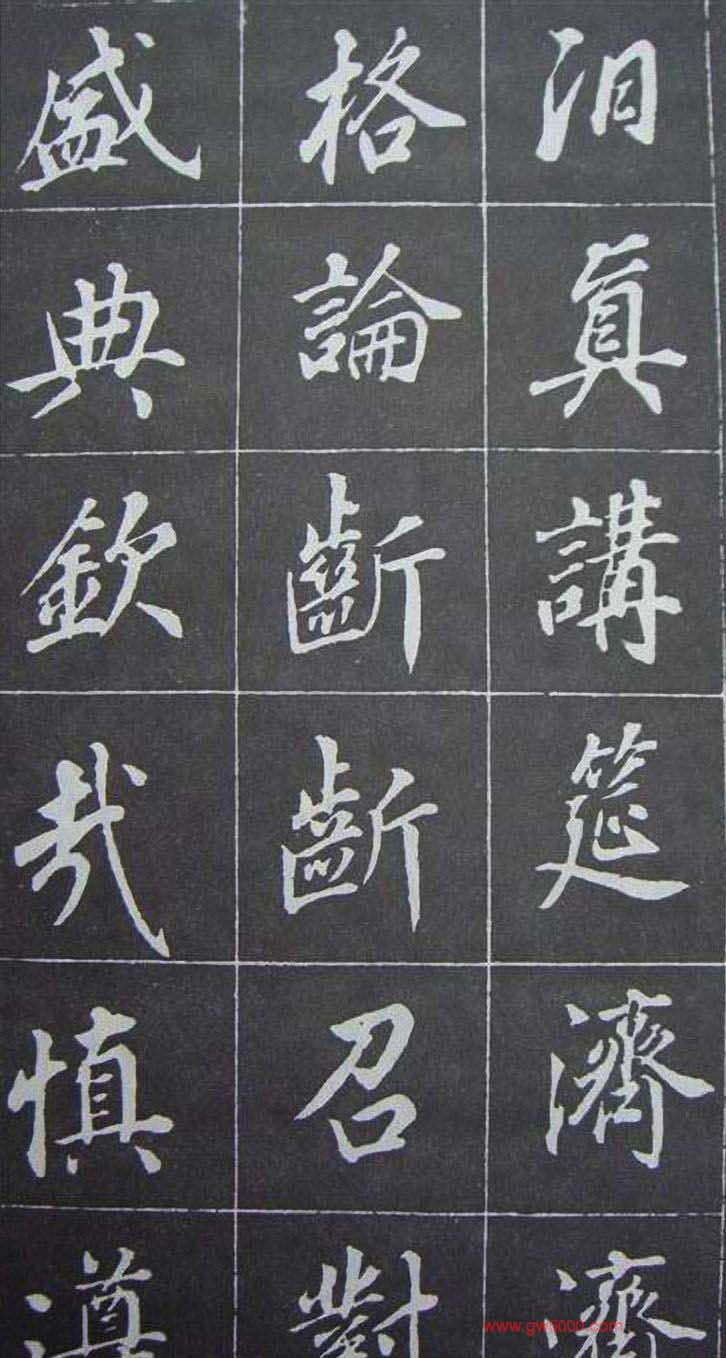 汨真講筵濟濟
格論齗齗召對
盛典欽哉慎遵
www.gw5000.com